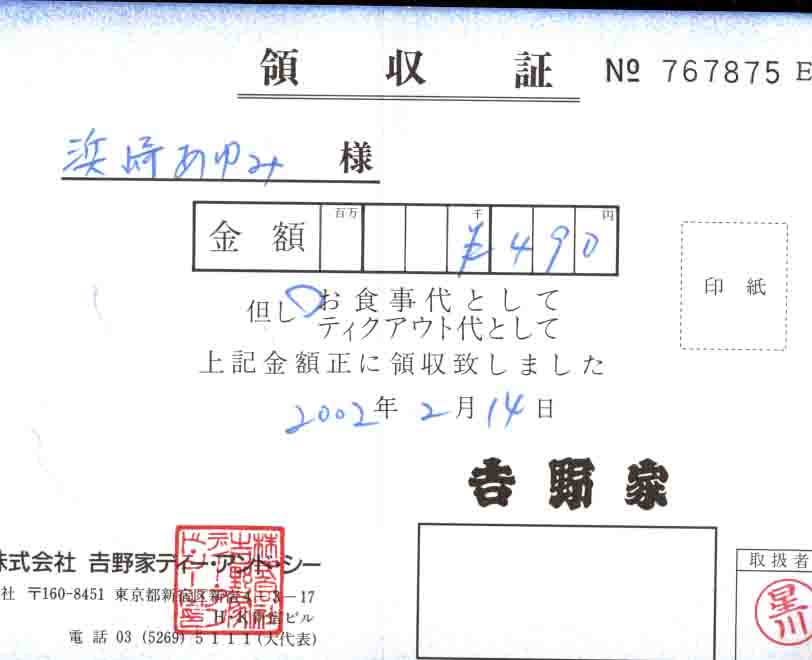 領収証 № 767875 E
浜崎あゆみ 様
金額 百万 千 円 ¥490
印紙
但し お食事代として
ティクアウト代として
上記金額正に領収致しました
2002年 2月 14日
吉野家
株式会社 吉野家ディー・アンド・シー
取扱者
社 〒160-8451 東京都新宿区新宿4-3-17
星川
H・K新宿ビル
電話 03 (5269) 5111 (大代表)